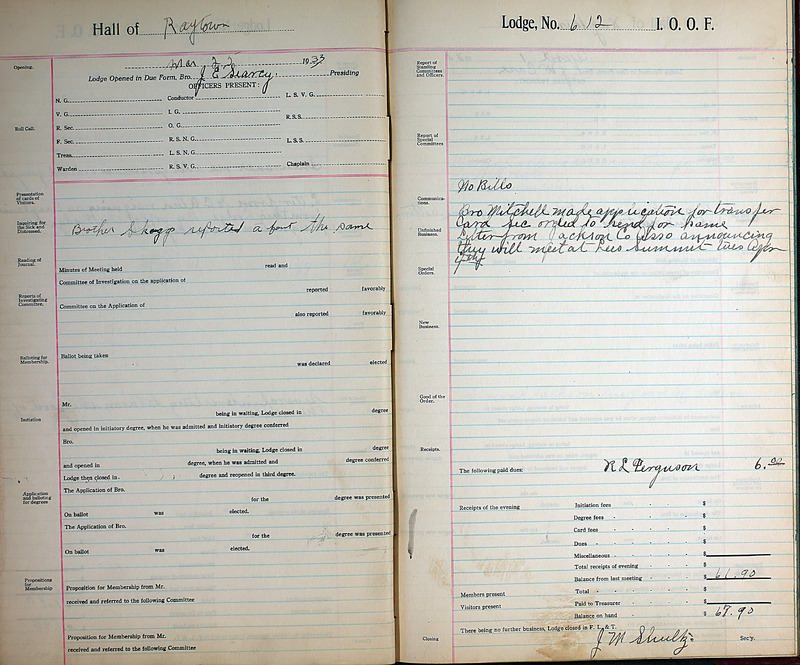 Hall of Raytown
Mar 22 1933
Opening.
Lodge Opened in Due Form, Bro. J E Searcy. Presiding
OFFICERS PRESENT:
N. G. Conductor L. S. V. G.
V. G. I. G. R.S.S.
Roll Call.
R. Sec. O. G.
F. Sec. R. S. N. G. L.S.S.
Treas. L. S. N. G.
Warden R. S. V. G. Chaplain
Presentation
of cards of
Visitors.
Inquiring for
the Sick and
Distressed.
Brother Skaggs reported a bout the same
Reading of
Journal.
Minutes of Meeting held read and
Committee of Investigation on the application of
reported favorably
Reports of
Investigating
Committee.
Committee on the Application of
also reported favorably
Balloting for
Membership.
Ballot being taken
was declared elected
Mr.
being in waiting, Lodge closed in degree
Initiation
and opened in initiatory degree, when he was admitted and initiatory degree conferred
Bro.
being in waiting, Lodge closed in degree
and opened in degree, when he was admitted and degree conferred
Lodge then closed in degree and reopened in third degree.
Application
and balloting
for degrees
The Application of Bro.
for the degree was presented
On ballot was elected.
The Application of Bro.
for the degree was presented
On ballot was elected.
Propositions
for
Membership
Proposition for Membership from Mr.
received and referred to the following Committee
Proposition for Membership from Mr.
received and referred to the following Committee
Lodge, No. 612 I. O. O. F.
Report of
Standing
Committees
and Officers.
Report of
Special
Committees
No Bills
Communica-
tions.
Bro Mitchell made application for transfer
Card sec orded to send for same
Unfinished
Business.
Letter from Jackson Co Asso announcing
they will meet at Lees Summit tues Apr
Special
Orders.
New
Business.
Good of the
Order.
Receipts.
The following paid dues: R L Ferguson 6.00
Receipts of the evening Initiation fees $
Degree fees $
Card fees $
Dues $
Miscellaneous $
Total receipts of evening $
Balance from last meeting $ 61.90
Members present Total $
Visitors present Paid to Treasurer $
Balance on hand $ 67.90
There being no further business, Lodge closed in F. L. & T.
Closing J M Shultz. Sec'y.